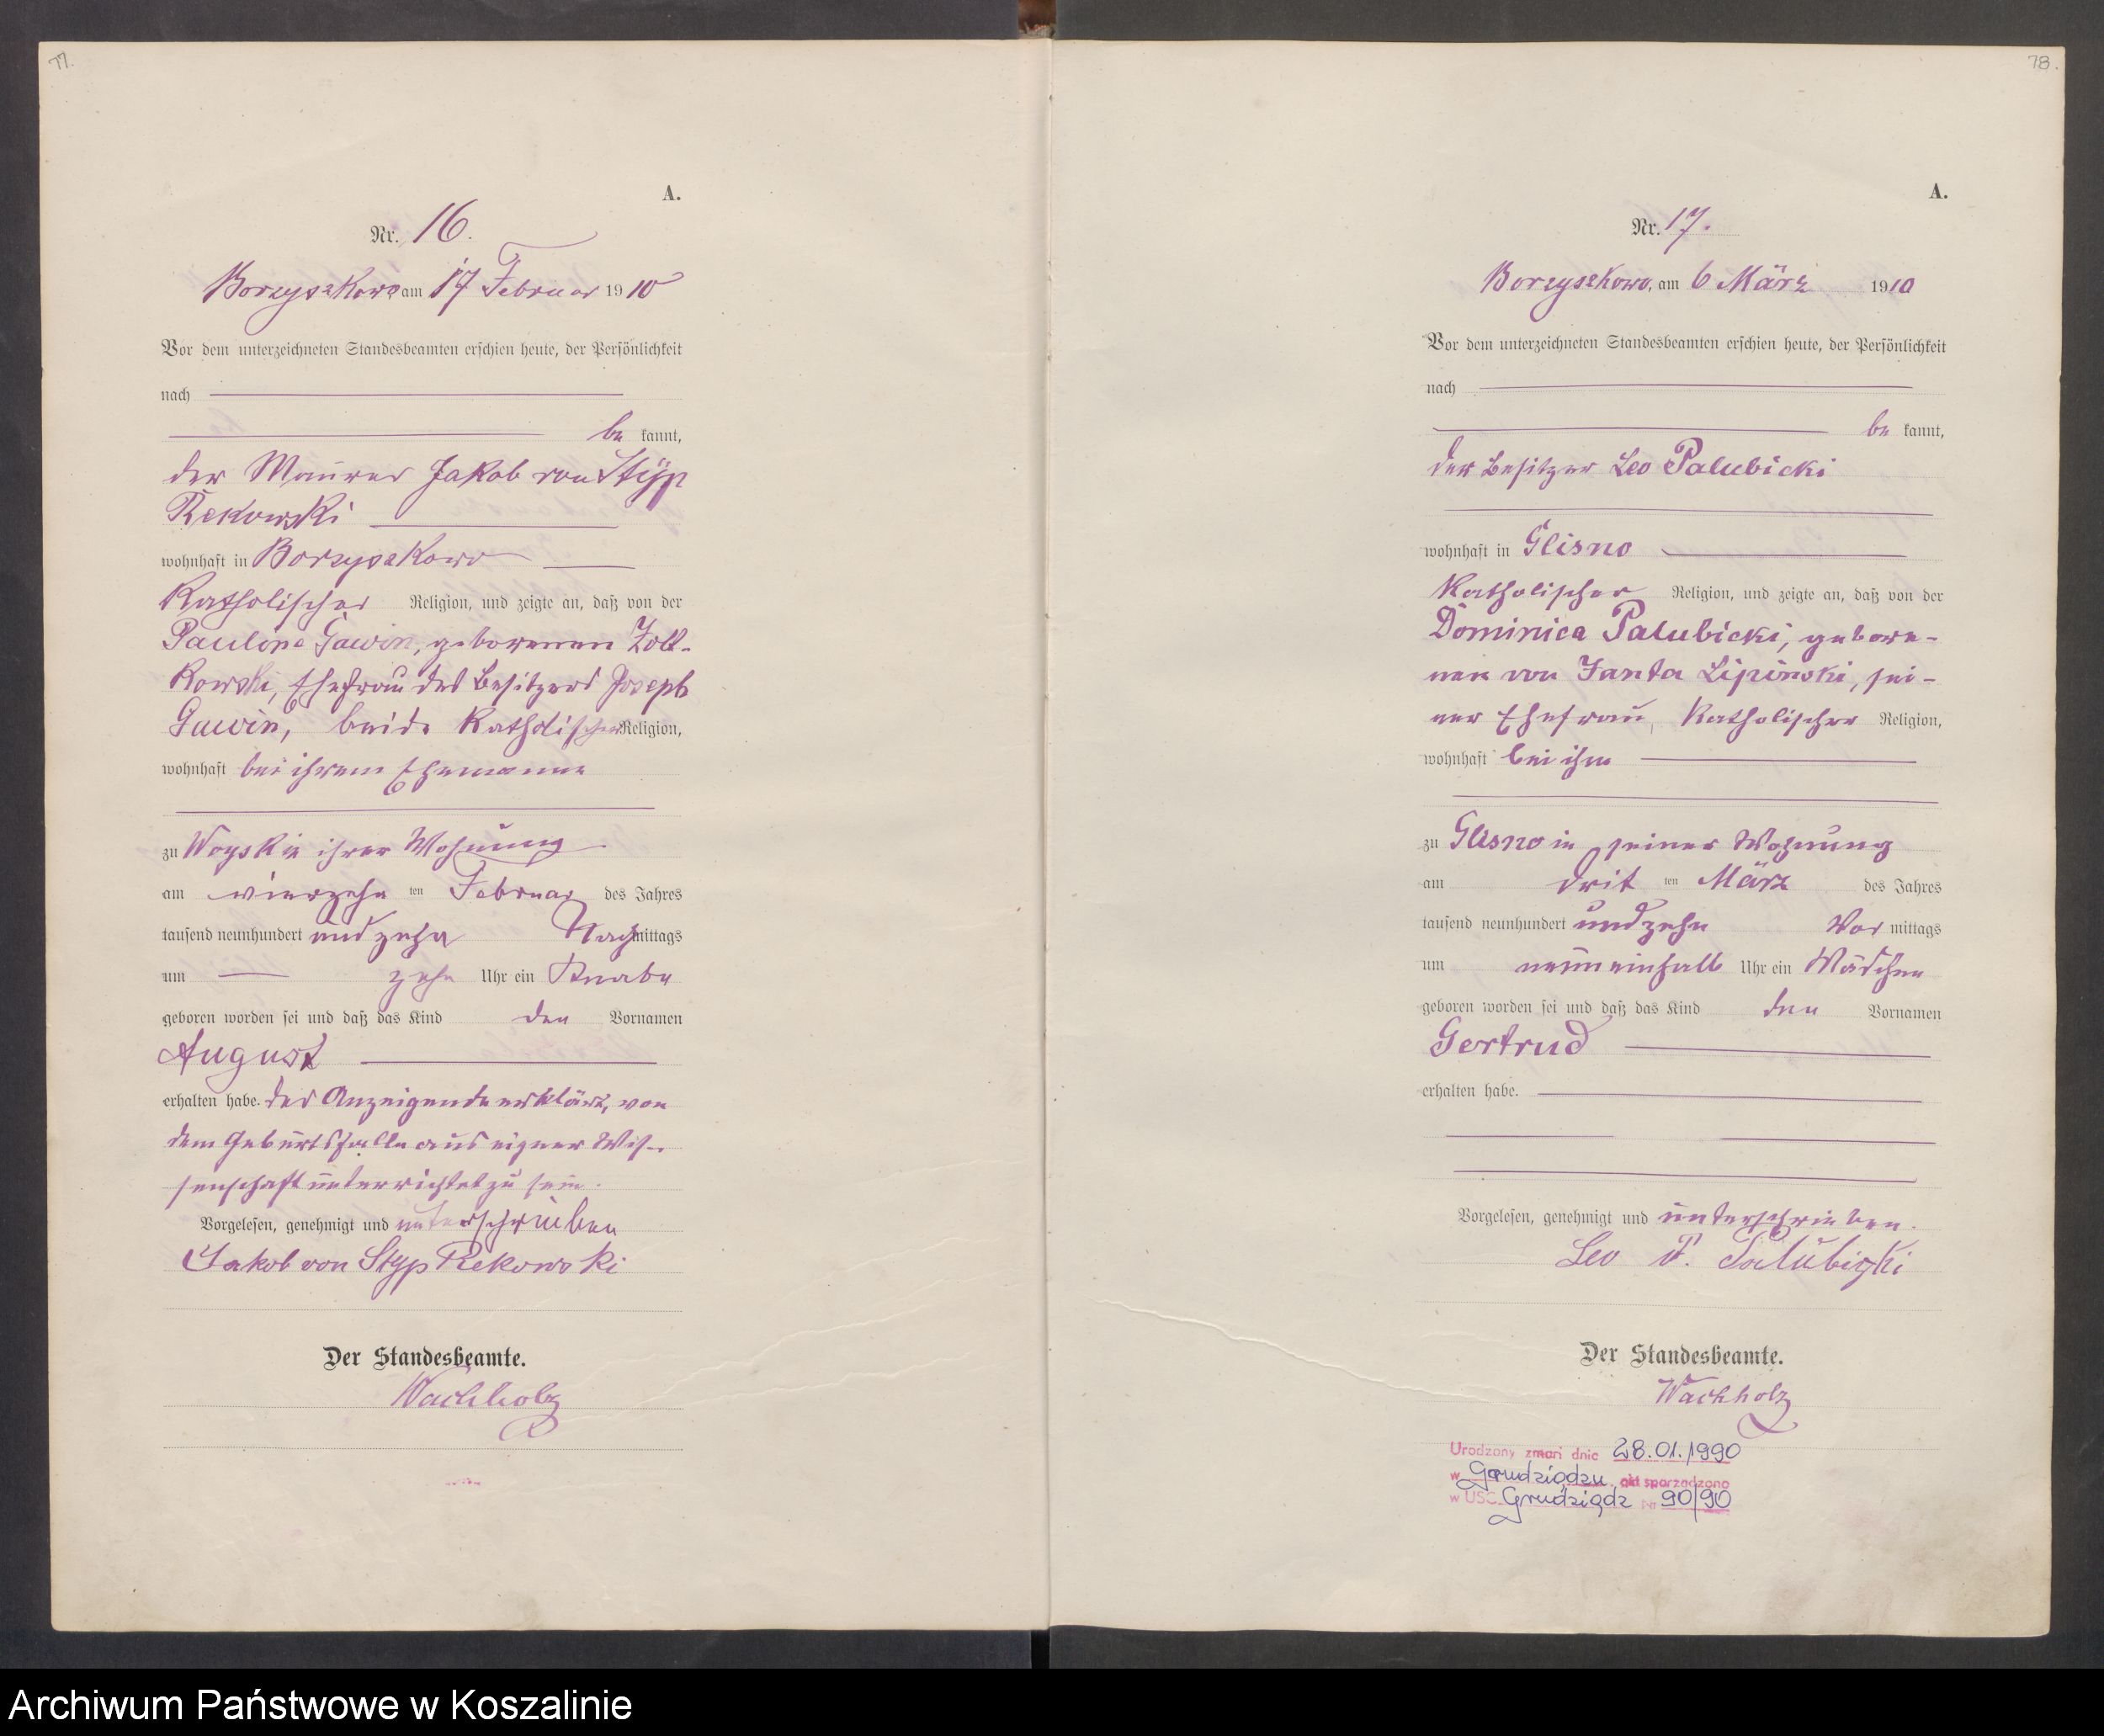 77.
A.
Nr. 16.
Borzyszkowo am 17 Februar 1910
Vor dem unterzeichneten Standesbeamten erschien heute, der Persönlichkeit
nach
be kannt,
der Maurer Jakob von Styp
Rekowski
wohnhaft in Borzyszkowo
Katholischer Religion, und zeigte an, daß von der
Pauline Gawin, geborenen Zolt-
kowski, Ehefrau des Besitzers Joseph
Gawin, beide Katholischer Religion,
wohnhaft bei ihrem Ehemanne
zu Woysk in ihrer Wohnung
am vierzehn ten Februar des Jahres
tausend neunhundert und zehn Nachmittags
um zehn Uhr ein Knabe
geboren worden sei und daß das Kind den Vornamen
August
erhalten habe. Der Anzeigende erklärt, von
dem Geburtsfalle aus eigner Wis-
senschaft unterrichtet zu sein.
Vorgelesen, genehmigt und unterschrieben
Jakob von Styp Rekowski
Der Standesbeamte.
Wachholz
78.
A.
Nr. 17.
Borzyszkowo, am 6 März 1910
Vor dem unterzeichneten Standesbeamten erschien heute, der Persönlichkeit
nach
be kannt,
der Besitzer Leo Palubicki
wohnhaft in Glisno
Katholischer Religion, und zeigte an, daß von der
Dominica Palubicki, gebore-
nen von Janta Lipinski, sei-
ner Ehefrau, Katholischer Religion,
wohnhaft bei ihm
zu Glisno in seiner Wohnung
am drit ten März des Jahres
tausend neunhundert und zehn Vor mittags
um neuneinhalb Uhr ein Mädchen
geboren worden sei und daß das Kind den Vornamen
Gertrud
erhalten habe.
Vorgelesen, genehmigt und unterschrieben.
Leo v. Palubicki
Der Standesbeamte.
Wachholz
Urodzony zmarł dnia 28.01.1990
w Grudziądzu akt sporządzono
w USC Grudziądz Nr 90/90
Archiwum Państwowe w Koszalinie